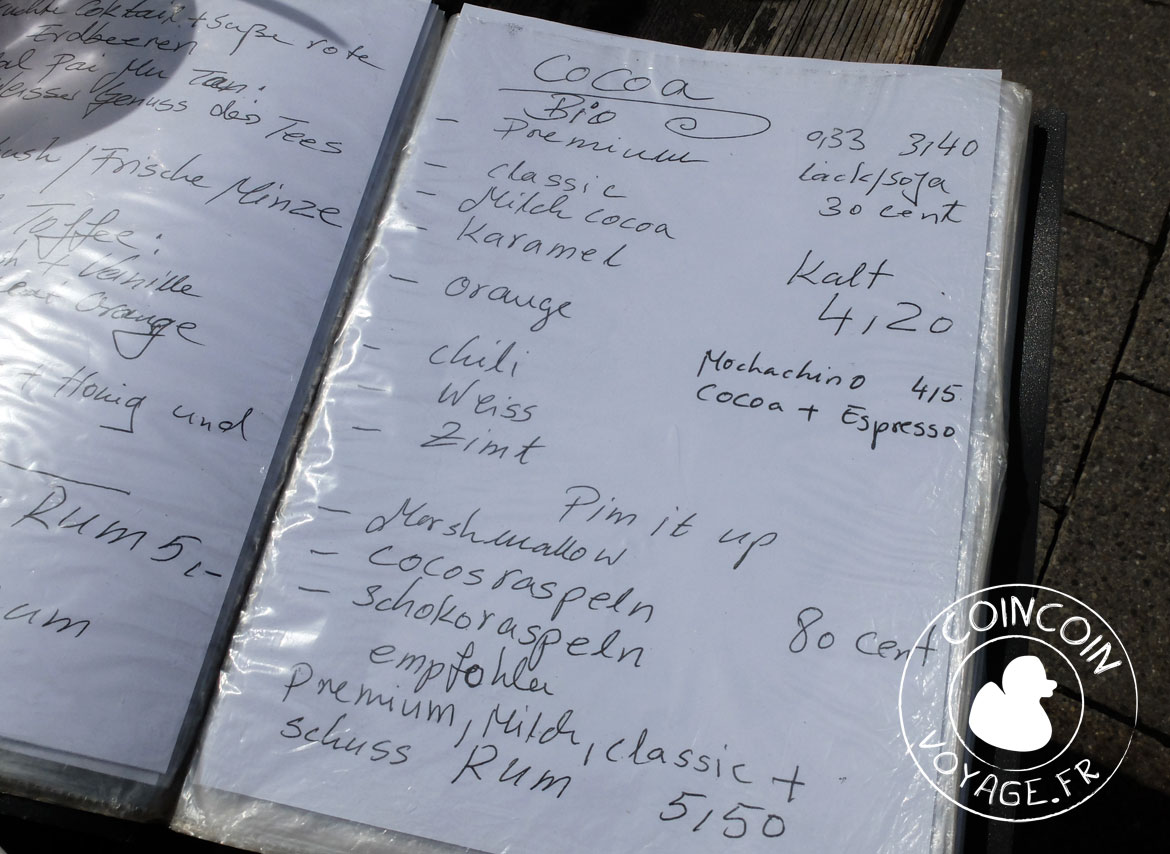 Coktail + Süße rote
Erdbeeren
Pai Mu Tan.
Genuss des Tees
/ Frische Minze
Toffee:
+ Vanille
Orange
+ Honig und
Rum 5,-
Cocoa
Bio
- Premium 0,33 3,40
lack/soja
- classic 30 cent
- Milch cocoa
- Karamel
Kalt
- orange 4,20
- chili Mochachino 4,5
- Weiss Cocoa + Espresso
- Zimt
Pim it up
- Marshmallow
- Cocosraspeln
- Schokoraspeln 80 cent
empfohlen
Premium, Milch, classic +
schuss Rum 5,50
COINCOIN
VOYAGE.FR